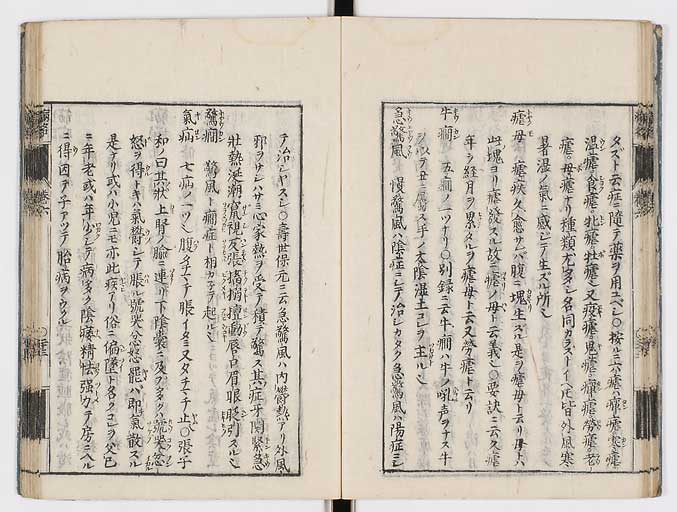 ダスト云症ニ隨テ藥ヲ用ユベシ○按ルニ六瘧ハ瘴瘧寒瘧
溫瘧食瘧牝瘧牡瘧又痎瘧鬼瘧瘴瘧勞瘧老
瘧母瘧ナリ種類尤多シ名同カラストイヘ𪜈皆外風寒
暑湿ノ氣ニ感シテ生ズル所
瘧母 瘧疾久ク愈サレバ腹ニ塊生スル是ヲ瘧母ト云リ母トハ
此塊ヨリ瘧發スル故ニ瘧ノ母ト云義○要訣ニ云久瘧
年ヲ経月ヲ累ヌルヲ瘧母ト云又勞瘧ト云リ
牛癇 五癇ノ一ツナリ○別録ニ云牛癇ハ牛ノ吼声ヲナス牛
ヲ以テ丑ニ属ス手ノ太陰湿土コレヲ主ル
急驚風 慢驚風ハ陰症ニシテ治シガタク急驚風ハ陽症ニシ
テ治シヤスシ○壽世保元ニ云急驚風ハ内鬱熱アリ外風
邪ヲサシハサミ心家熱ヲ受テ積テ驚ス其症牙関緊急
壯熱涎潮竄視反張搐搦顫動唇口眉眼眨引スル
驚癇 驚風ト癇症ト相カ子テ起ル
氣病 七病ノ一ツ腹タチマチ脹イタミ又タチマチ止○張子
和曰其状上腎ノ腧ニ連リ下陰嚢ニ及フ多クハ號哭忿
怒ヲ得トキハ氣鬱シテ脹ル號哭忿怒罷ハ即氣散スル
是ナリ或ハ小児ニモ亦此疾アリ俗ニ偏墜ト名クコレヲ父已
ニ年老或ハ年少シテ病多ク陰痿精怯強カテ房ニ入ル
ニ得因テ子アツテ胎病ヲウクル